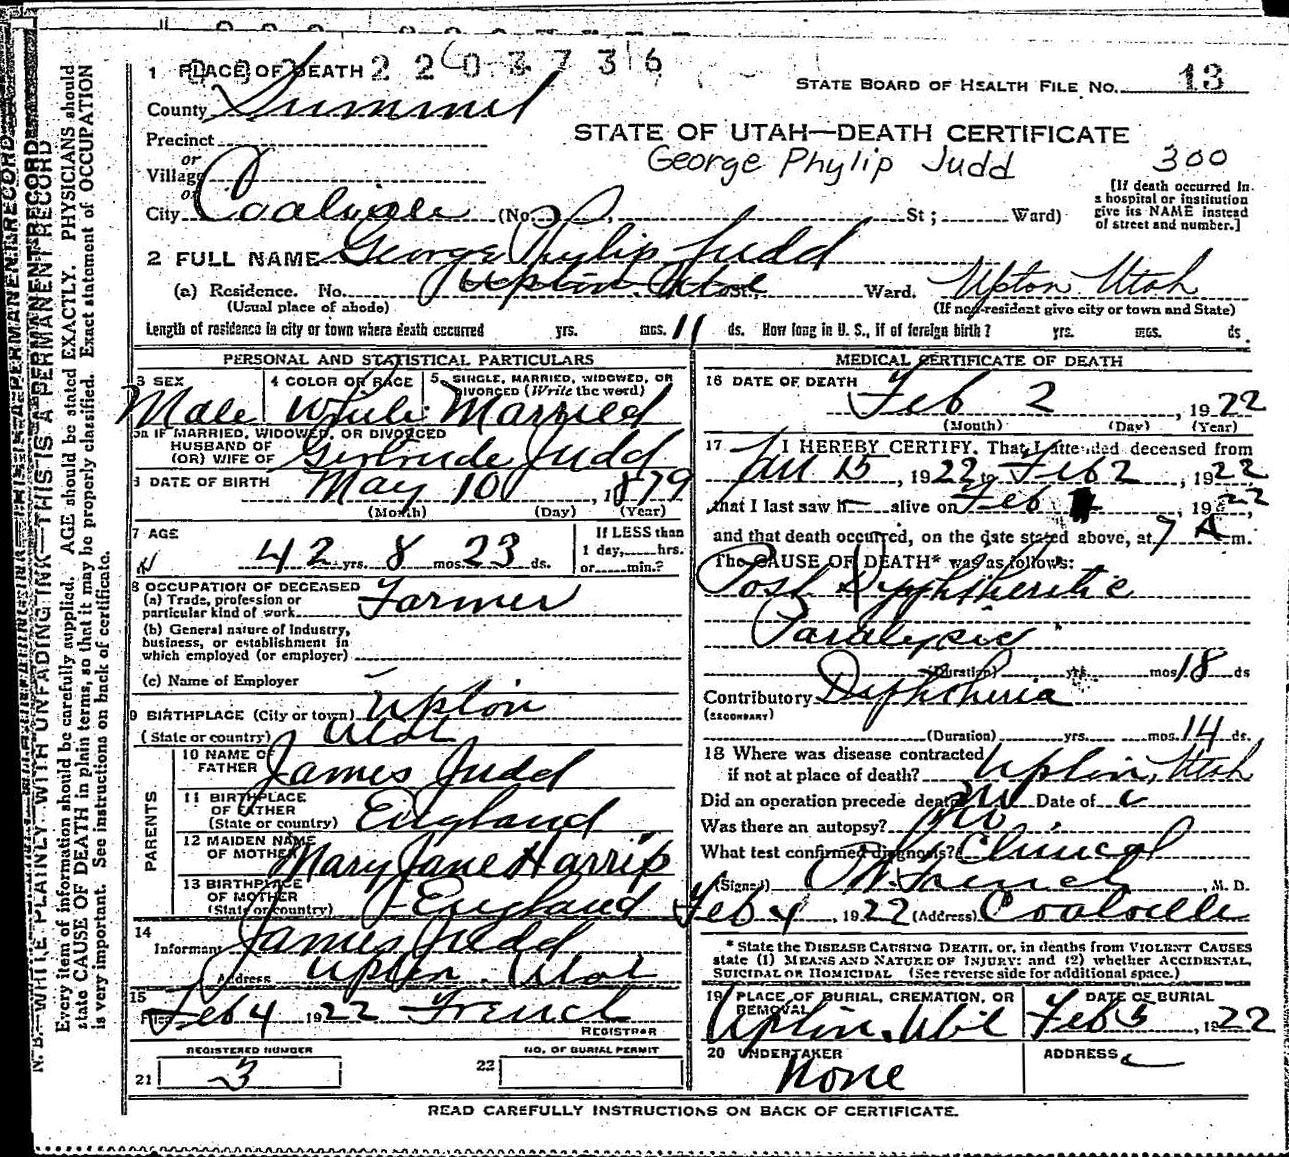 1 PLACE OF DEATH 2203736
STATE BOARD OF HEALTH FILE NO. 13
County Summit
STATE OF UTAH—DEATH CERTIFICATE
Precinct
George Phylip Judd 300
or
Village
or
City Coalville (No. St; Ward)
[If death occurred in
a hospital or institution
give its NAME instead
of street and number.]
2 FULL NAME George Phylip Judd
(a) Residence. No. Upton. Utah St., Ward. Upton Utah
(Usual place of abode) (If non-resident give city or town and State)
Length of residence in city or town where death occurred yrs. mos. 11 ds. How long in U. S., if of foreign birth? yrs. mos. ds.
PERSONAL AND STATISTICAL PARTICULARS
3 SEX 4 COLOR OR RACE 5 SINGLE, MARRIED, WIDOWED, OR
DIVORCED (Write the word)
Male White Married
5a IF MARRIED, WIDOWED, OR DIVORCED
HUSBAND OF
(OR) WIFE OF Gertrude Judd
6 DATE OF BIRTH May 10, 1879
(Month) (Day) (Year)
7 AGE If LESS than
1 day, hrs.
or min.?
42 yrs. 8 mos. 23 ds.
8 OCCUPATION OF DECEASED
(a) Trade, profession or
particular kind of work Farmer
(b) General nature of industry,
business, or establishment in
which employed (or employer)
(c) Name of Employer
9 BIRTHPLACE (City or town) Upton
(State or country) Utah
PARENTS
10 NAME OF
FATHER James Judd
11 BIRTHPLACE
OF FATHER
(State or country) England
12 MAIDEN NAME
OF MOTHER Mary Jane Harrip
13 BIRTHPLACE
OF MOTHER
(State or country) England
14
Informant James Judd
Address Upton. Utah
15
Filed Feb 4 1922 French
REGISTRAR
REGISTERED NUMBER NO. OF BURIAL PERMIT
21 3 22
MEDICAL CERTIFICATE OF DEATH
16 DATE OF DEATH
Feb 2, 1922
(Month) (Day) (Year)
17 I HEREBY CERTIFY. That I attended deceased from
Jan 15, 1922 to Feb 2, 1922
that I last saw h alive on Feb 1, 1922,
and that death occurred, on the date stated above, at 7 A m.
The CAUSE OF DEATH* was as follows:
Post Dyphtheritic
Paralysic
(Duration) yrs. mos. 18 ds
Contributory Dyphtheria
(SECONDARY)
(Duration) yrs. mos. 14 ds.
18 Where was disease contracted
if not at place of death? Upton, Utah
Did an operation precede death? no Date of
Was there an autopsy? no.
What test confirmed diagnosis? Clinical
(Signed) French, M. D.
Feb 4, 1922 (Address) Coalville
* State the DISEASE CAUSING DEATH, or, in deaths from VIOLENT CAUSES
state (1) MEANS AND NATURE OF INJURY: and (2) whether ACCIDENTAL,
SUICIDAL or HOMICIDAL (See reverse side for additional space.)
19 PLACE OF BURIAL, CREMATION, OR
REMOVAL
Upton. Utah
DATE OF BURIAL
Feb 5, 1922
20 UNDERTAKER
None
ADDRESS
READ CAREFULLY INSTRUCTIONS ON BACK OF CERTIFICATE.
N. B.—WRITE PLAINLY WITH UNFADING INK—THIS IS A PERMANENT RECORD
Every item of information should be carefully supplied. AGE should be stated EXACTLY. PHYSICIANS should
state CAUSE OF DEATH in plain terms, so that it may be properly classified. Exact statement of OCCUPATION
is very important. See instructions on back of certificate.